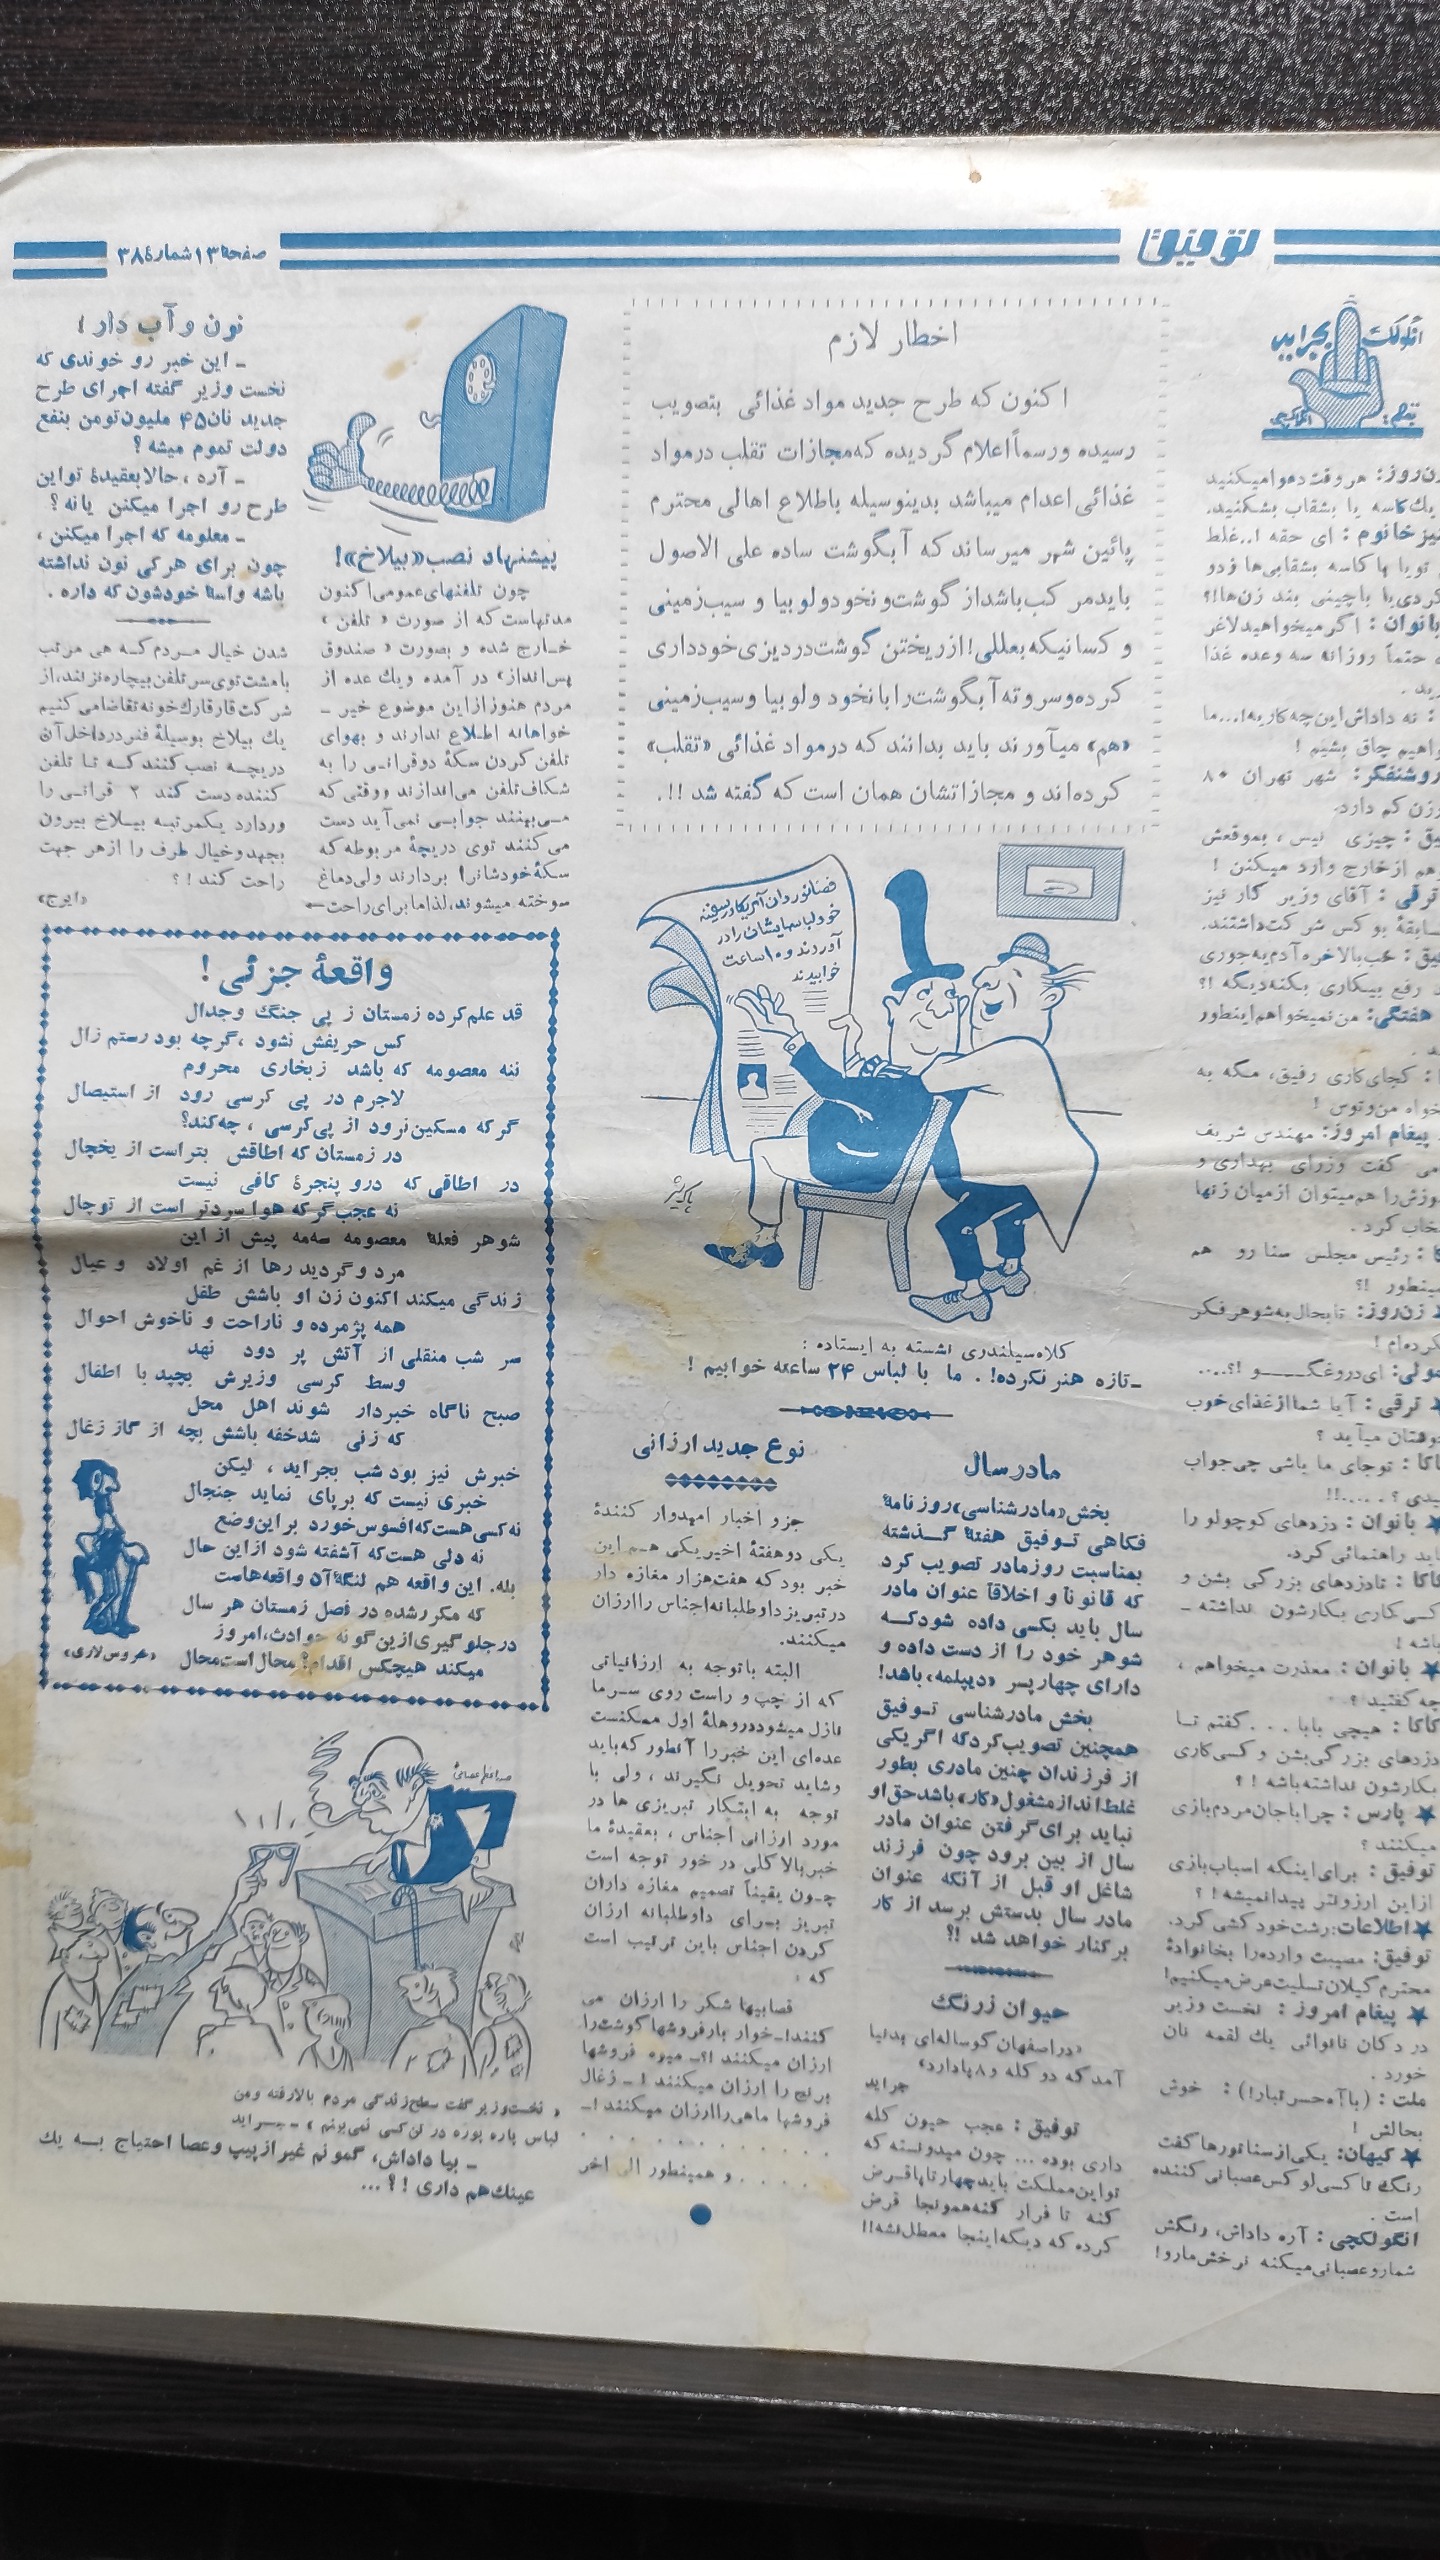 توفیق
صفحهٔ ۱۳ شمارهٔ ۳۸
انگولک
بجراید
زن‌روز: هر وقت دعوا میکنید
یك کاسه یا بشقاب بشکنید.
ای حقه !..غلط
بانوان : اگر میخواهید لاغر
حتماً روزانه سه وعده غذا
: نه داداش این چه کاریه!...ما
چاق بشیم !
روشنفکر: شهر تهران ۸۰
زن کم دارد.
چیزی نیس ، بموقعش
هم از خارج وارد میکنن !
ترقی : آقای وزیر کار نیز
بو کس شرکت داشتند.
خب بالاخره آدم یه جوری
رفع بیکاری بکنه دیگه !؟
هفتگی: من نمیخواهم اینطور
: کجای کاری رفیق، مگه به
من و توس !
پیغام امروز: مهندس شریف
می گفت وزرای بهداری و
را هم میتوان از میان زنها
کرد .
: رئیس مجلس سنا رو هم
!؟
زن‌روز: تا بحال به شوهر فکر
نکرده‌ام !
ای دروغگـــو !؟....
★ ترقی : آیا شما از غذای خوب
خوشتان میآید ؟
کاکا : تو جای ما باشی چی جواب
میدی ؟.....!!
★ بانوان : دزدهای کوچولو را
باید راهنمائی کرد.
کاکا : تا دزدهای بزرگی بشن و
کسی کاری بکارشون نداشته ـ
باشه !
★ بانوان : معذرت میخواهم ،
چه گفتید ؟
کاکا : هیچی بابا . . . گفتم تا
دزدهای بزرگی بشن و کسی کاری
بکارشون نداشته باشه !؟
★ پارس : چرا با جان مردم بازی
میکنند ؟
توفیق : برای اینکه اسباب‌بازی
از این ارزونتر پیدا نمیشه !؟
★ اطلاعات: رشت خود کشی کرد.
توفیق: مصیبت وارده را بخانوادهٔ
محترم گیلان تسلیت عرض میکنیم!
★ پیغام امروز : نخست وزیر
در دکان نانوائی یك لقمه نان
خورد .
ملت : (با آه حسرتبار!) : خوش
بحالش !
★ کیهان: یکی از سناتورها گفت
رنگ تاکسی لوکس عصبانی کننده
است .
انگولکچی : آره داداش، رنگش
شمارو عصبانی میکنه نرخش مارو!
اخطار لازم
اکنون که طرح جدید مواد غذائی بتصویب
رسیده و رسماً اعلام گردیده که مجازات تقلب در مواد
غذائی اعدام میباشد بدینوسیله باطلاع اهالی محترم
پائین شهر میرساند که آبگوشت ساده علی الاصول
باید مرکب باشد از گوشت و نخود و لوبیا و سیب زمینی
و کسانیکه بعللی! از ریختن گوشت در دیزی خودداری
کرده و سر و ته آبگوشت را با نخود و لوبیا و سیب زمینی
«هم» میآورند باید بدانند که در مواد غذائی «تقلب»
کرده‌اند و مجازاتشان همان است که گفته شد !!.
فضانوردان آمریکا در سفینه
خود لباسهایشان را در
آوردند و ۱۰ ساعت
خوابیدند
کلاه سیلندری نشسته به ایستاده :
ـ تازه هنر نکرده! . ما با لباس ۲۴ ساعته خوابیم !
مادر سال
بخش «مادرشناسی» روزنامهٔ
فکاهی توفیق هفتهٔ گذشته
بمناسبت روز مادر تصویب کرد
که قانوناً و اخلاقاً عنوان مادر
سال باید بکسی داده شود کـه
شوهر خود را از دست داده و
دارای چهار پسر «دیپلمه» باشد!
بخش مادرشناسی توفیق
همچنین تصویب کرد که اگر یکی
از فرزندان چنین مادری بطور
غلط انداز مشغول «کار» باشد حق او
نباید برای گرفتن عنوان مادر
سال از بین برود چون فرزند
شاغل او قبل از آنکه عنوان
مادر سال بدستش برسد از کار
برکنار خواهد شد !؟
حیوان زرنگ
«در اصفهان گوساله‌ای بدنیا
آمد که دو کله و ۸ پا دارد»
جراید
توفیق : عجب حیوون کله
داری بوده ... چون میدونسته که
تو این مملکت باید چهار تا پا قرض
کنه تا فرار کنه همونجا قرض
کرده که دیگه اینجا معطل نشه!!
نوع جدید ارزانی
جزو اخبار امیدوار کنندهٔ
یکی دو هفتهٔ اخیر یکی هم این
خبر بود که هفت هزار مغازه دار
در تبریز داوطلبانه اجناس را ارزان
میکنند.
البته با توجه به ارزانیاتی
که از چپ و راست روی سر ما
نازل میشود در وهلهٔ اول ممکنست
عده‌ای این خبر را آنطور که باید
و شاید تحویل نگیرند ، ولی با
توجه به ابتکار تبریزی ها در
مورد ارزانی اجناس ، بعقیدهٔ ما
خبر بالا کلی در خور توجه است
چون یقیناً تصمیم مغازه داران
تبریز برای داوطلبانه ارزان
کردن اجناس باین ترتیب است
که :
قصابیها شکر را ارزان می
کنند!ـ خوار بار فروشها گوشت را
ارزان میکنند !؟ـ میوه فروشها
برنج را ارزان میکنند ! ـ زغال
فروشها ماهی را ارزان میکنند !ـ
. . . . . . . . . . .
. . . . و همینطور الی آخر
پیشنهاد نصب «بیلاخ»!
چون تلفنهای عمومی اکنون
مدتهاست که از صورت « تلفن »
خارج شده و بصورت « صندوق
پس‌انداز» در آمده و یك عده از
مردم هنوز از این موضوع خیر ـ
خواهانه اطلاع ندارند و بهوای
تلفن کردن سکهٔ دو قرانی را به
شکاف تلفن می‌اندازند و وقتی که
می‌بینند جوابی نمی‌آید دست
می کنند توی دریچهٔ مربوطه که
سکهٔ خودشان‌را بردارند ولی دماغ
سوخته میشوند، لذا ما برای راحت←
شدن خیال مردم که هی مرتب
با مشت توی سر تلفن بیچاره نزنند، از
شرکت قارقارك خونه تقاضا می کنیم
یك بیلاخ بوسیلهٔ فنر در داخل آن
دریچه نصب کنند که تا تلفن
کننده دست کند ۲ قرانی را
وردارد یکمرتبه بیلاخ بیرون
بجهد و خیال طرف را از هر جهت
راحت کند !؟
«ایرج»
نون و آب دار !
ـ این خبر رو خوندی که
نخست وزیر گفته اجرای طرح
جدید نان ۴۵ ملیون تومن بنفع
دولت تموم میشه ؟
ـ آره ، حالا بعقیدهٔ تو این
طرح رو اجرا میکنن یا نه ؟
ـ معلومه که اجرا میکنن ،
چون برای هر کی نون نداشته
باشه واسهٔ خودشون که داره .
واقعهٔ جزئی !
قد علم کرده زمستان ز پی جنگ و جدال
کس حریفش نشود ، گرچه بود رستم زال
ننه معصومه که باشد ز بخاری محروم
لاجرم در پی کرسی رود از استیصال
گر که مسکین نرود از پی کرسی ، چه کند؟
در زمستان که اطاقش بتر است از یخچال
در اطاقی که در و پنجرهٔ کافی نیست
نه عجب گر که هوا سردتر است از توچال
شوهر فعلهٔ معصومه سه مه پیش از این
مرد و گردید رها از غم اولاد و عیال
زندگی میکند اکنون زن او با شش طفل
همه پژمرده و ناراحت و ناخوش احوال
سر شب منقلی از آتش پر دود نهد
وسط کرسی و زیرش بچپد با اطفال
صبح ناگاه خبردار شوند اهل محل
که زنی شد خفه با شش بچه از گاز زغال
خبرش نیز بود شب بجراید ، لیکن
خبری نیست که برپای نماید جنجال
نه کسی هست که افسوس خورد بر این وضع
نه دلی هست که آشفته شود از این حال
بله. این واقعه هم لنگهٔ آن واقعه‌هاست
که مکرر شده در فصل زمستان هر سال
در جلوگیری ازین گونه حوادث، امروز
میکند هیچکس اقدام؟ محال است محال
«خروس لاری»
صدراعظم عصائی
« نخست وزیر گفت سطح زندگی مردم بالا رفته و من
لباس پاره پوره در تن کسی نمی بینم » ـ جراید
ـ بیا داداش، گمونم غیر از پیپ و عصا احتیاج به یك
عینك هم داری !؟...